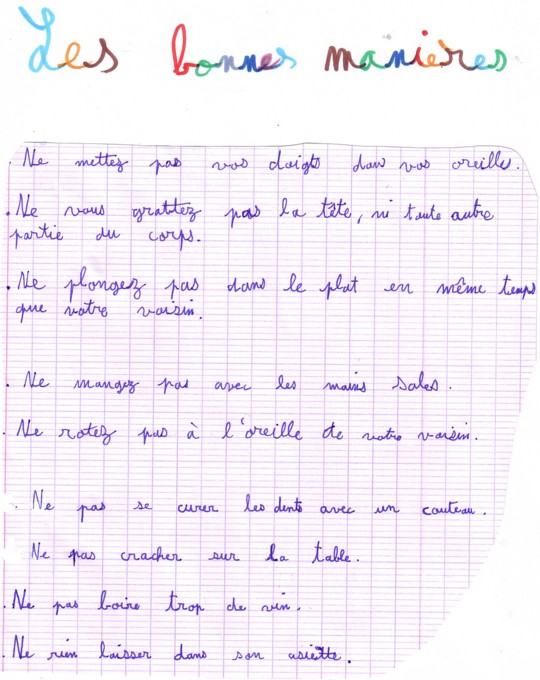 Les bonnes manières
. Ne mettez pas vos doigts dans vos oreille.
. Ne vous grattez pas la tête, ni toute autre
partie du corps.
. Ne plongez pas dans le plat en même temps
que votre voisin.
. Ne mangez pas avec les mains sales.
. Ne rotez pas à l'oreille de votre voisin.
. Ne pas se curer les dents avec un couteau.
Ne pas cracher sur la table.
. Ne pas boire trop de vin.
. Ne rien laisser dans son asiette.